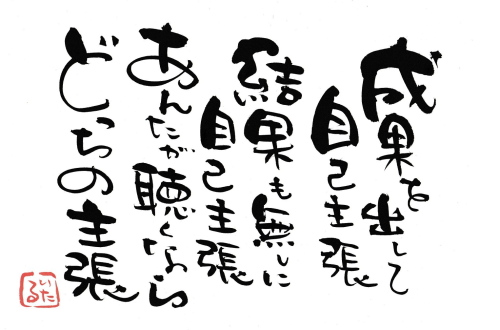 成果を出して
自己主張
結果も無しに
自己主張
あんたが聴くなら
どっちの主張
いたる